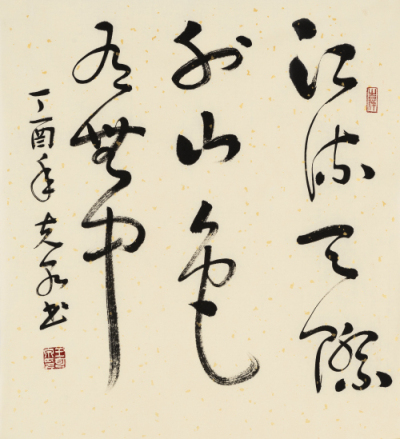 江流天際
外山色
有無中
丁酉年克书